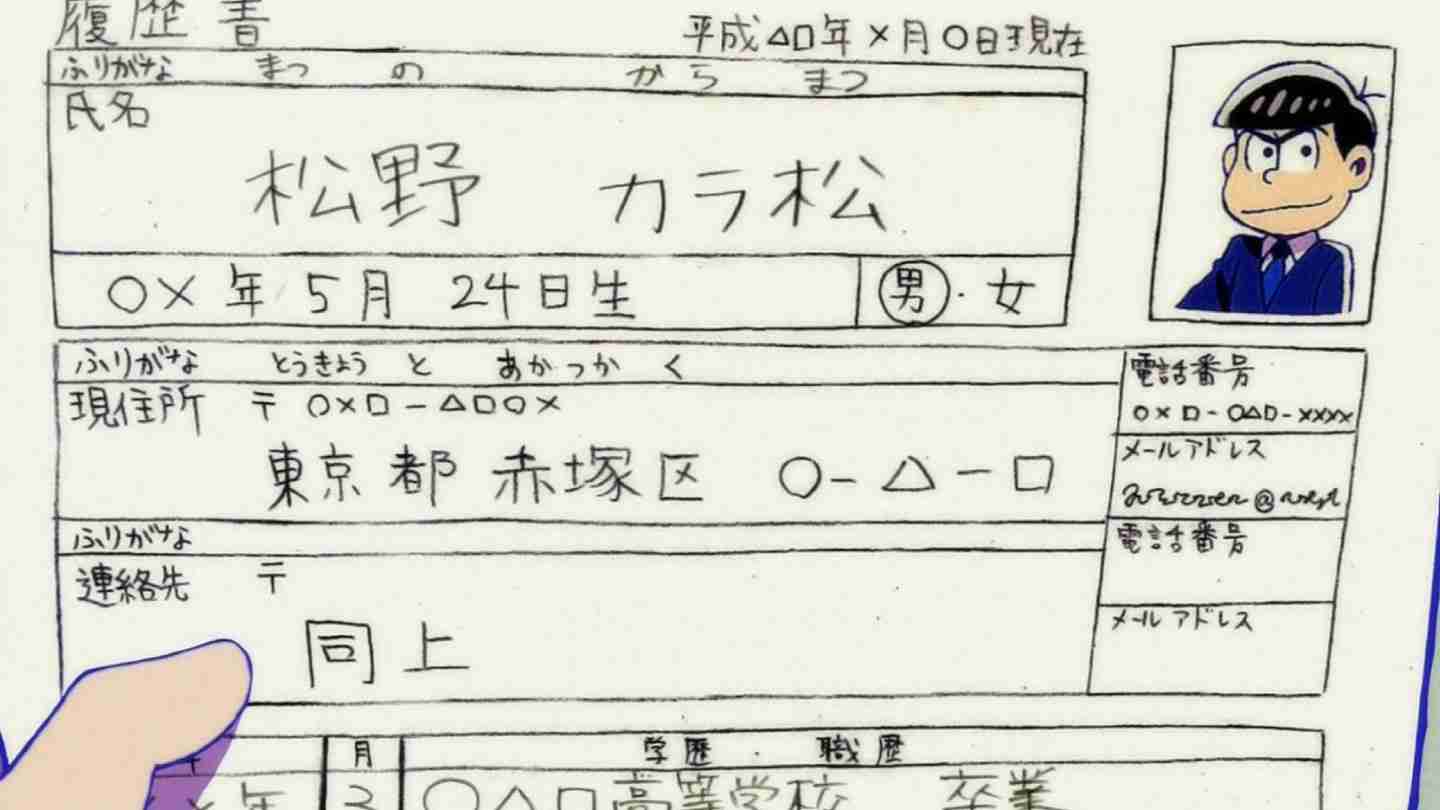 履歴書
平成△□年×月○日現在
ふりがな まつ の から まつ
氏名
松野 カラ松
○×年5月24日生
男・女
ふりがな とうきょう と あかつか く
現住所 〒○×□-△□○×
東京都赤塚区 ○-△-□
電話番号
○×□-○△□-××××
メールアドレス
ふりがな
連絡先 〒
同上
電話番号
メールアドレス
月 学歴・職歴
年 3 ○△□高等学校 卒業